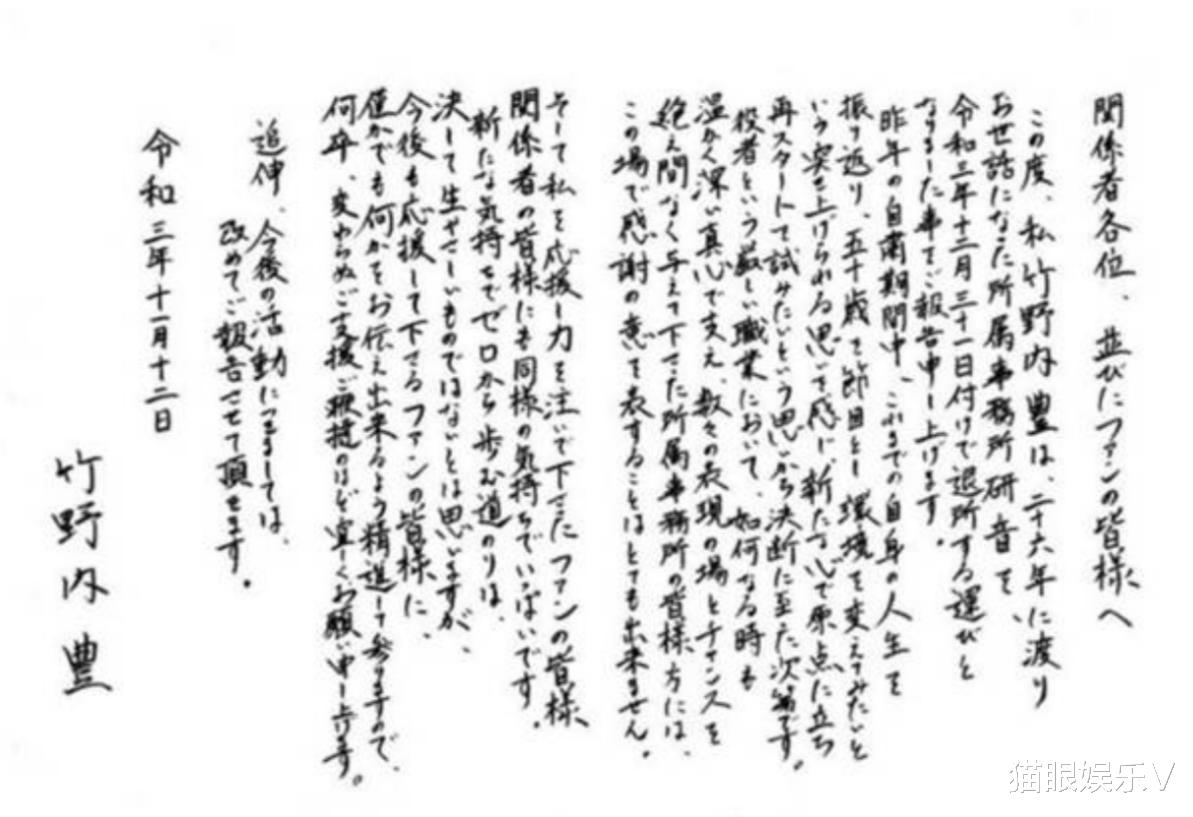 関係者各位、並びにファンの皆様へ
この度、私竹野内豊は、二十六年に渡り
お世話になった所属事務所研音を、
令和三年十二月三十一日付けで退所する運びと
なりました事をご報告申し上げます。
昨年の自粛期間中、これまでの自身の人生を
振り返り、五十歳を節目とし環境を変えてみたいと
いう突き上げられる思いを感じ、新たな心で原点に立ち
再スタートして試みたいという思いから決断に至った次第です。
役者という厳しい職業において、如何なる時も
温かく深い真心で支え、数々の表現の場とチャンスを
絶え間なく与えて下さった所属事務所の皆様方には、
この場で感謝の意を表することはとても出来ません。
そして私を応援し力を注いで下さったファンの皆様、
関係者の皆様にも同様の気持ちでいっぱいです。
新たな気持ちでゼロから歩む道のりは、
決して生やさしいものではないとは思いますが、
今後も応援して下さるファンの皆様に、
僅かでも何かをお伝え出来るよう精進して参りますので、
何卒、変わらぬご支援ご鞭撻のほど宜しくお願い申し上げます。
追伸、今後の活動につきましては、
改めてご報告させて頂きます。
令和三年十一月十二日
竹野内豊
猫眼娱乐V